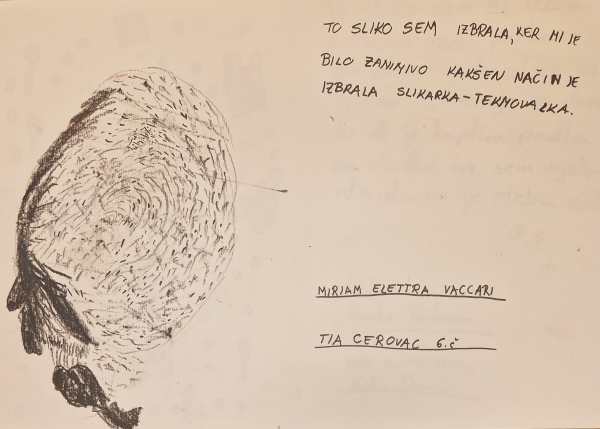 TO SLIKO SEM IZBRALA, KER MI JE
BILO ZANIMIVO KAKŠEN NAČIN JE
IZBRALA SLIKARKA-TEKMOVALKA.
MIRIAM ELETTRA VACCARI
TIA CEROVAC 6.č